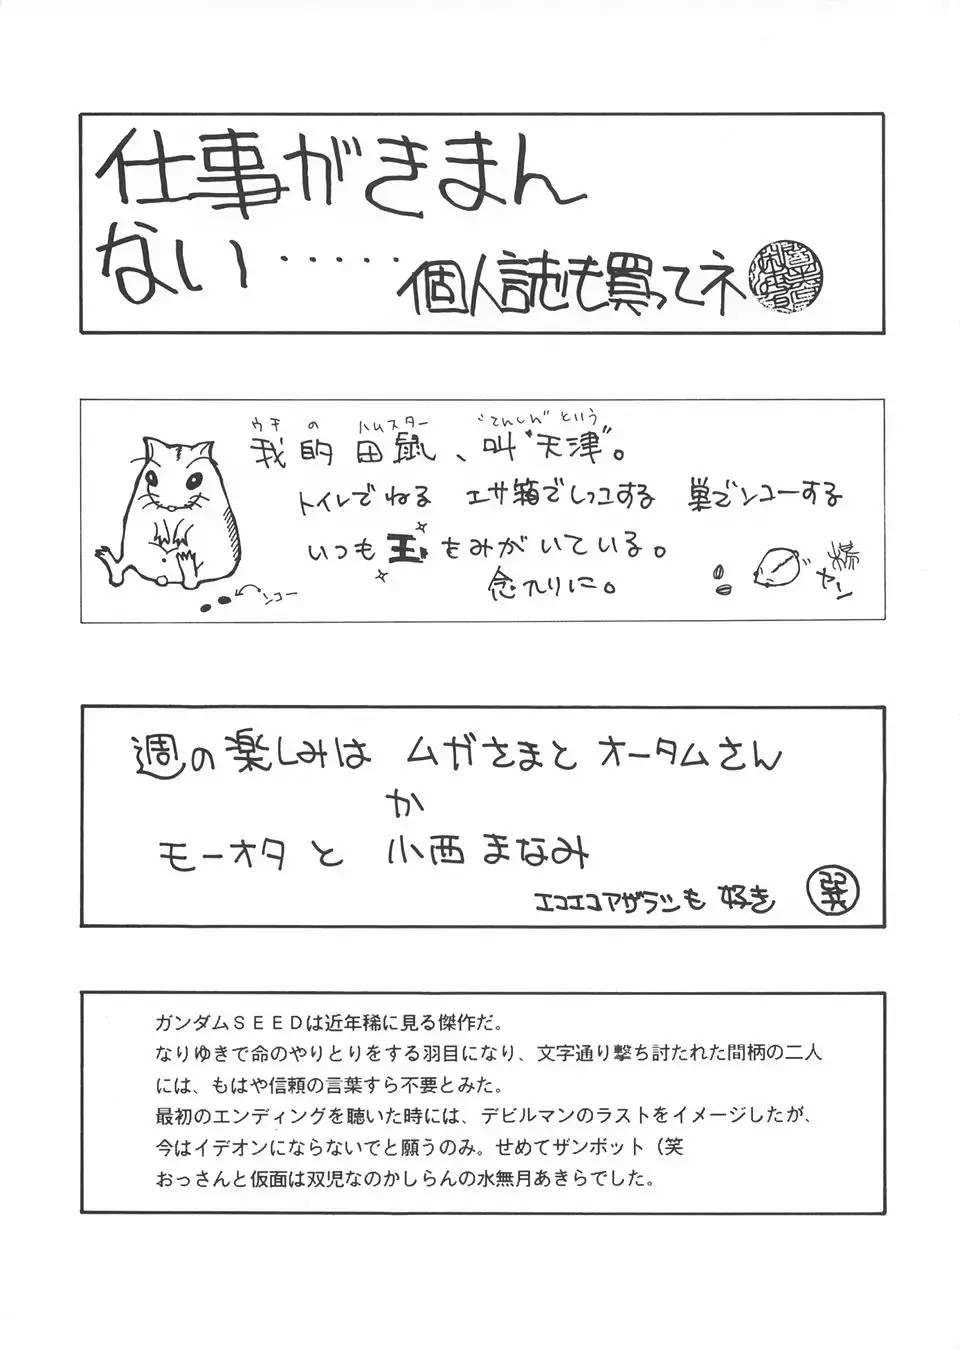 仕事がきまん
ない・・・・・・個人誌も買ってネ
ウチ の ハムスター “てんしん” という
我的田鼠、叫“天津”。
トイレでねる エサ箱でしっコする 巣でンコーする
いつも玉をみがいている。
念入りに。
ンコー
ヤーン
週の楽しみは ムガさまと オータムさん
か
モーオタ と 小西 まなみ
エコエコアザラシも 好き
巽
ガンダムＳＥＥＤは近年稀に見る傑作だ。
なりゆきで命のやりとりをする羽目になり、文字通り撃ち討たれた間柄の二人
には、もはや信頼の言葉すら不要とみた。
最初のエンディングを聴いた時には、デビルマンのラストをイメージしたが、
今はイデオンにならないでと願うのみ。せめてザンボット（笑
おっさんと仮面は双児なのかしらんの水無月あきらでした。